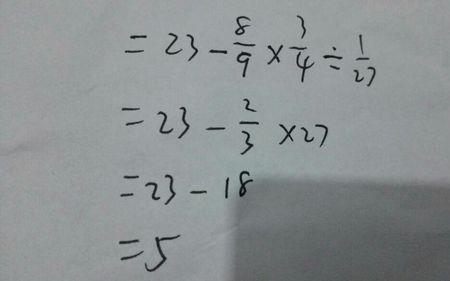 = 23 - 8/9 × 3/4 ÷ 1/27
= 23 - 2/3 × 27
= 23 - 18
= 5